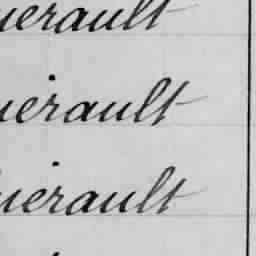 uerault
uérault
uérault